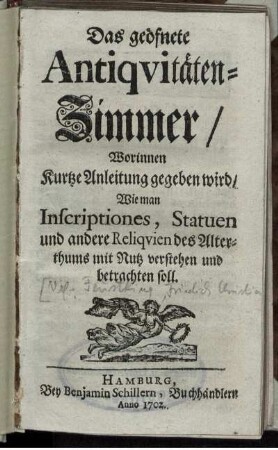 Das geöfnete
Antiqvitäten-
Zimmer/
Worinnen
Kurtze Anleitung gegeben wird/
Wie man
Inscriptiones, Statuen
und andere Reliqvien des Alter-
thums mit Nutz verstehen und
betrachten soll.
HAMBURG,
Bey Benjamin Schillern, Buchhändlern
Anno 1702.